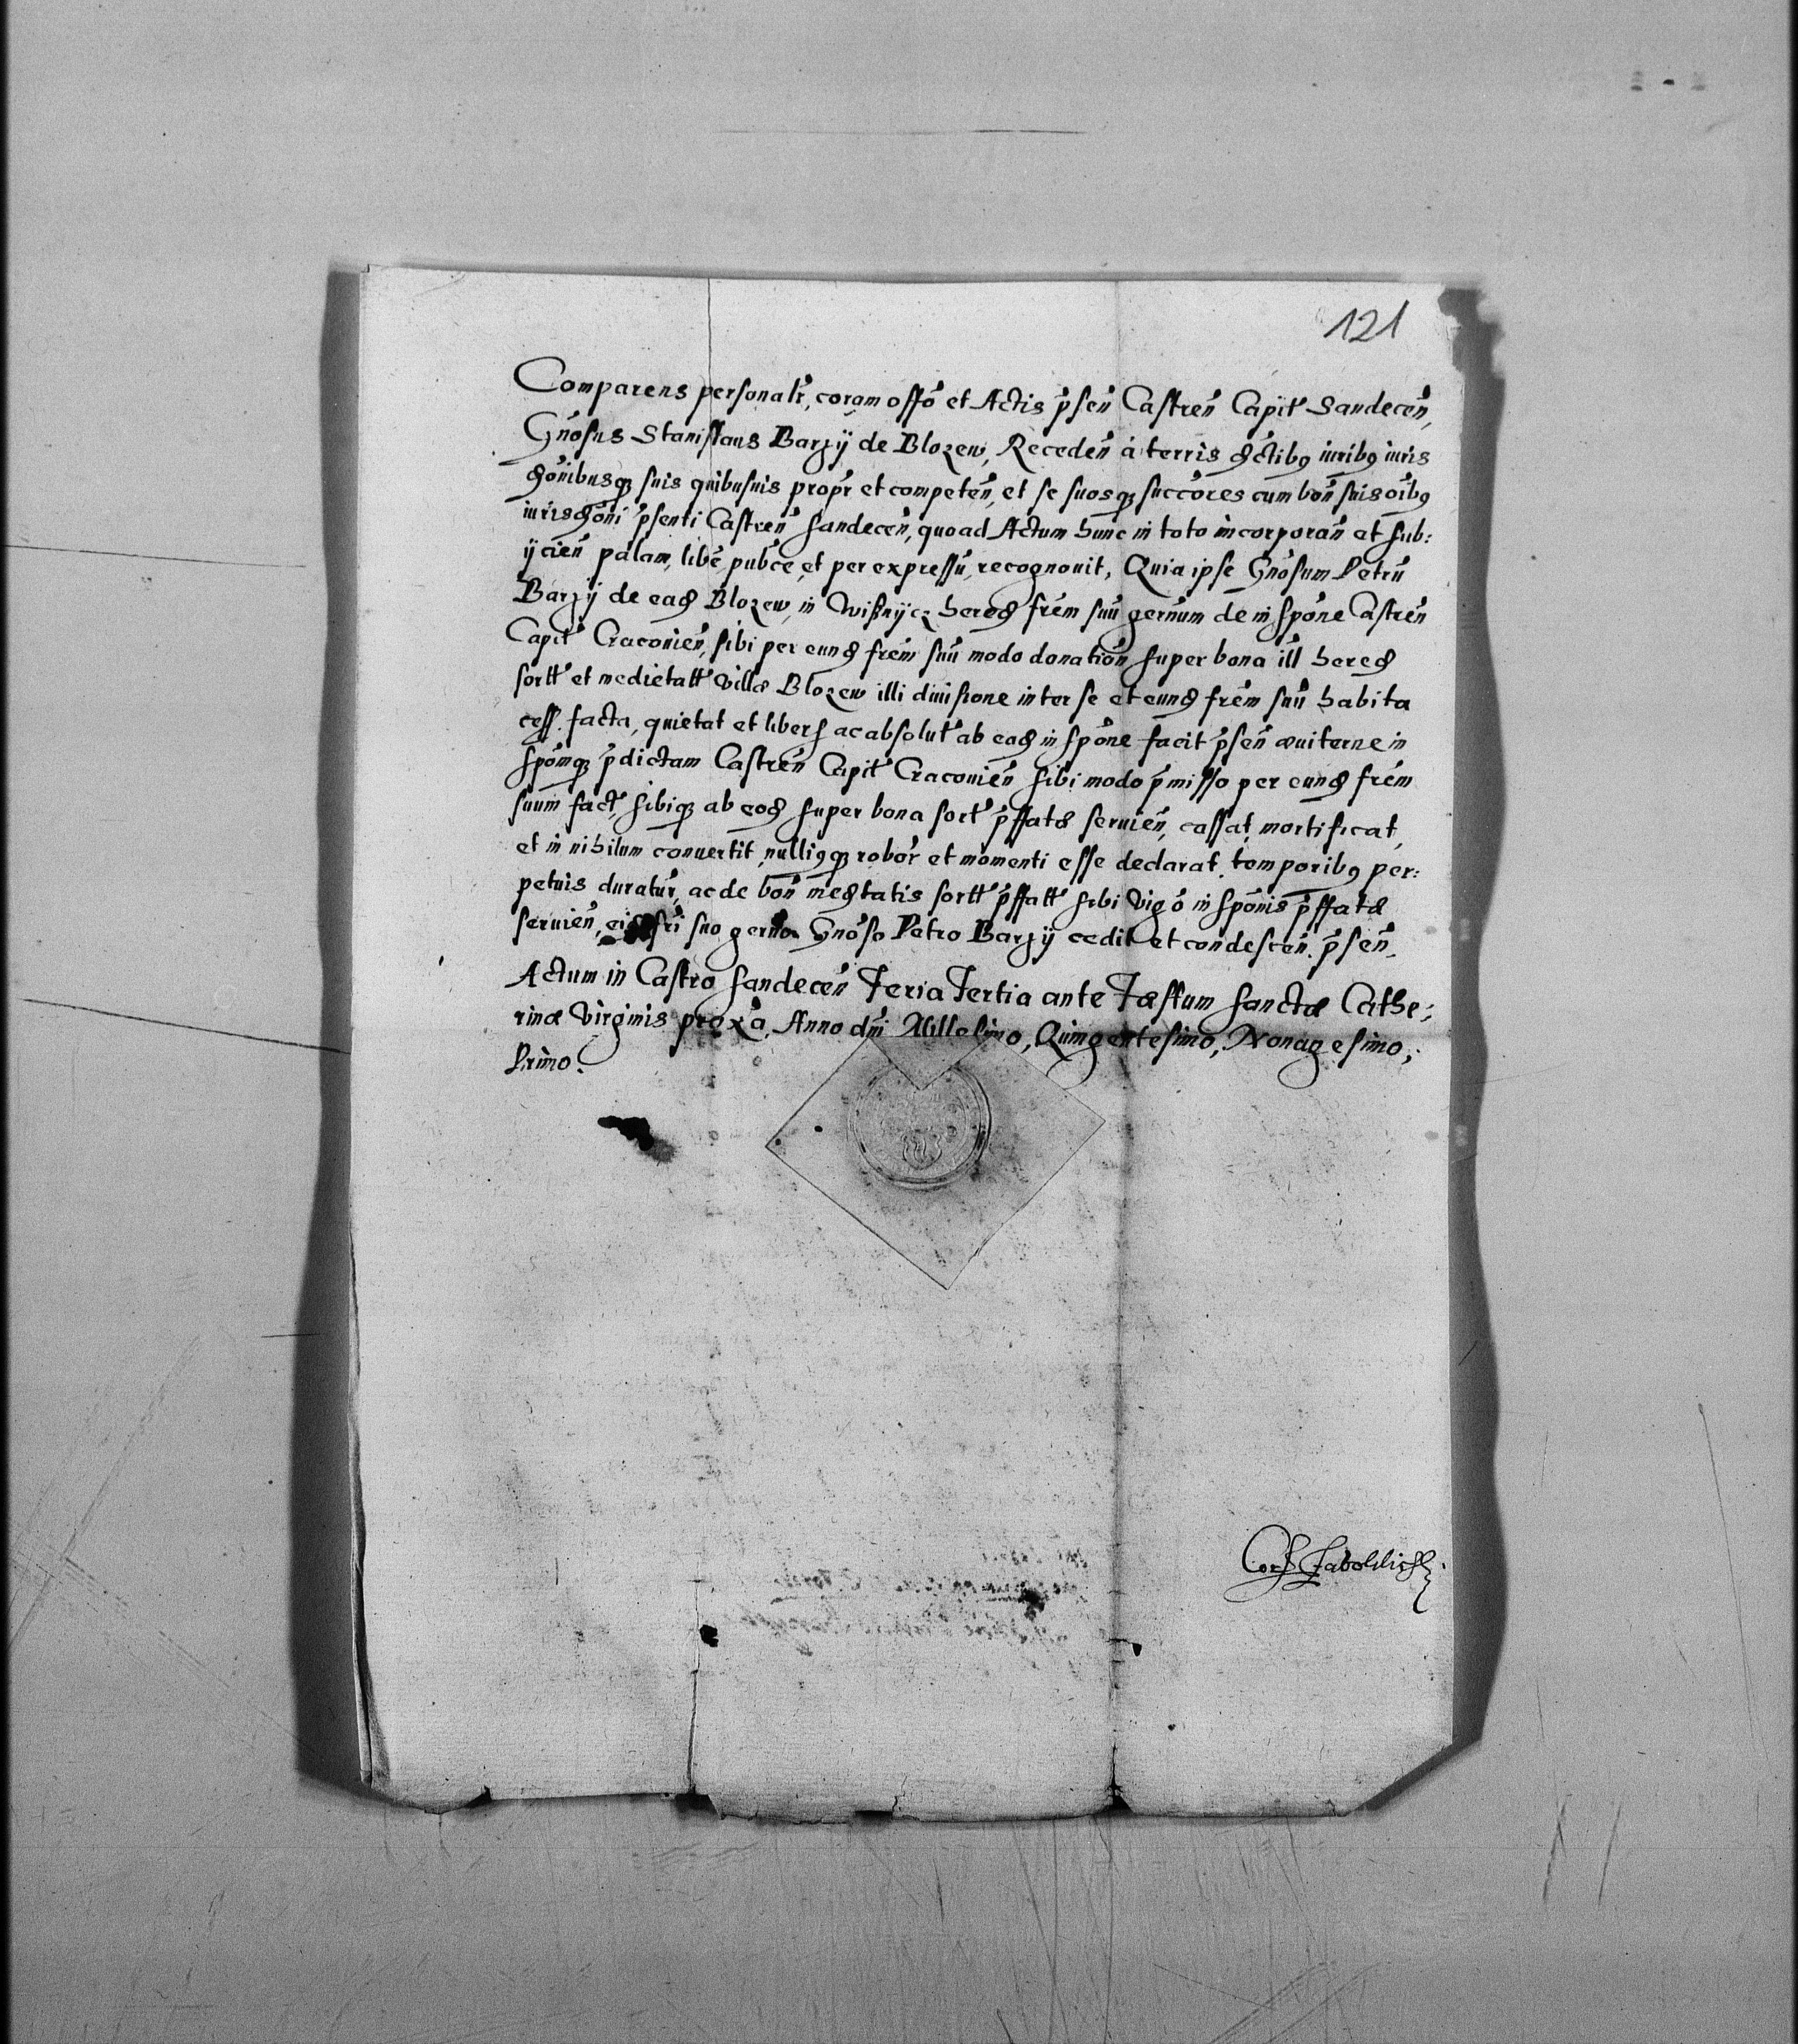 121
Comparens personalr̃, coram offõ et Actis p̃sen̄ Castren̄ Capit̃ Sandecen̄,
Gn̄osus Stanislaus Barzÿ de Blozew, Receden̄ à terris d̃ctibꝫ iuribꝫ iuris
d̃onibusqꝫ suis quibusuis propr̃ et competen̄, et se suosqꝫ succõres cum bon̄ suis oĩbꝫ
iurisd̃oni p̃senti Castren̄ Sandecen̄, quoad Actum hunc in toto incorporan̄ et sub:
ÿcien̄ palam, libẽ, pub̃ce, et per expressũ, recognouit, Quia ipse Gn̄osum Petrũ
Barzÿ de ead̃ Blozew, in Wißnÿcz hered̃ frẽm suũ germ̃num de inspõne Castren̄
Capit̃ Cracouien̄, sibi per eund̃ frẽm suũ modo donatiõn super bona ill hered̃
sortt̃ et medietatt̃ villæ Blozew illi diuisione inter se et eund̃ frẽm suũ habita
cess̃. facta, quietat et liber̃ ac absolut̃ ab ead̃ inspõne facit p̃sen̄ æuiterne in
spõmqꝫ p̃dictam Castren̄ Capit̃ Cracouien̄ sibi modo p̃misso per eund̃ frẽm
suum fact̃, sibiqꝫ ab eod̃ super bona sort̃ p̃ffatæ seruien̄, cassat, mortificat,
et in nihilum conuertit, nulliꝫqꝫ robor̃ et momenti esse declarat. temporibꝫ per:
petuis duratur̃, ac de bon̄ med̃tatis sortt̃ p̃ffatt̃ sibi vigõ inspõnis p̃ffatæ
seruien̄, fr̃i suo germ̃no Gn̄oso Petro Barzÿ cedit et condescen̄. p̃sen̄.
Actum in Castro Sandecen̄ Feria Tertia ante Fæstum Sanctæ Cathe:
rinæ Virginis prox̃a, Anno dñi Millesimo, Quingentesimo, Nonagesimo,
Primo.